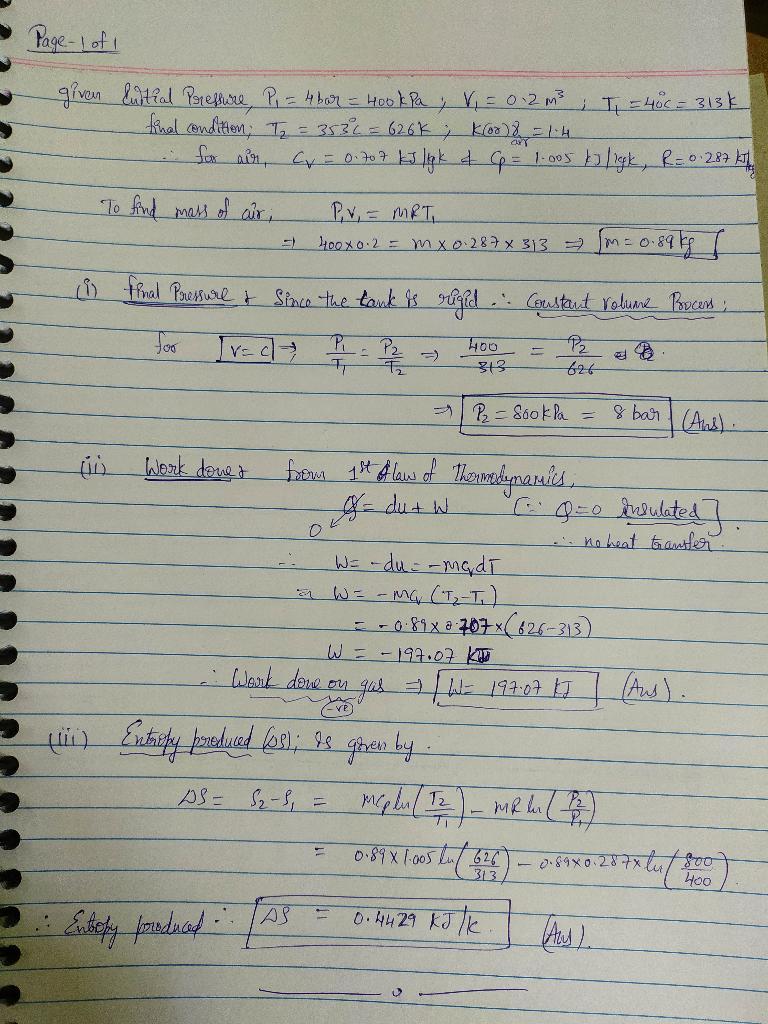 Page-1 of 1
given Initial Pressure, P₁ = 4 bar = 400 kPa ; V₁ = 0.2 m³ ; T₁ = 40°C = 313 K
final condition; T₂ = 353°C = 626 K ; K(or)γ air = 1.4
∴ for air, Cv = 0.707 kJ/kgK & Cp = 1.005 kJ/kgK, R = 0.287 kJ/kg
To find mass of air; P₁V₁ = MRT₁
⇒ 400x0.2 = m x 0.287 x 313 ⇒ m = 0.89 kg
(i) final Pressure : Since the tank is rigid ∴ Constant volume Process ;
for V=C ⇒ P₁/T₁ = P₂/T₂ ⇒ 400/313 = P₂/626
⇒ P₂ = 800 kPa = 8 bar (Ans).
(ii) Work done : from 1st law of Thermodynamics,
Q = du + W [∵ Q=0 Insulated]
0 ∴ no heat transfer.
∴ W = -du = -mcvdT
W = -mcv (T₂-T₁)
= -0.89 x 0.707 x (626-313)
W = -197.07 kJ
∴ Work done on gas ⇒ W = 197.07 kJ (Ans).
(-ve)
(iii) Entropy produced (ΔS); is given by.
ΔS = S₂-S₁ = mcp ln(T₂/T₁) - mR ln(P₂/P₁)
= 0.89 x 1.005 ln(626/313) - 0.89x0.287x ln(800/400).
∴ Entropy produced ∴ ΔS = 0.4429 kJ/k. (Ans).